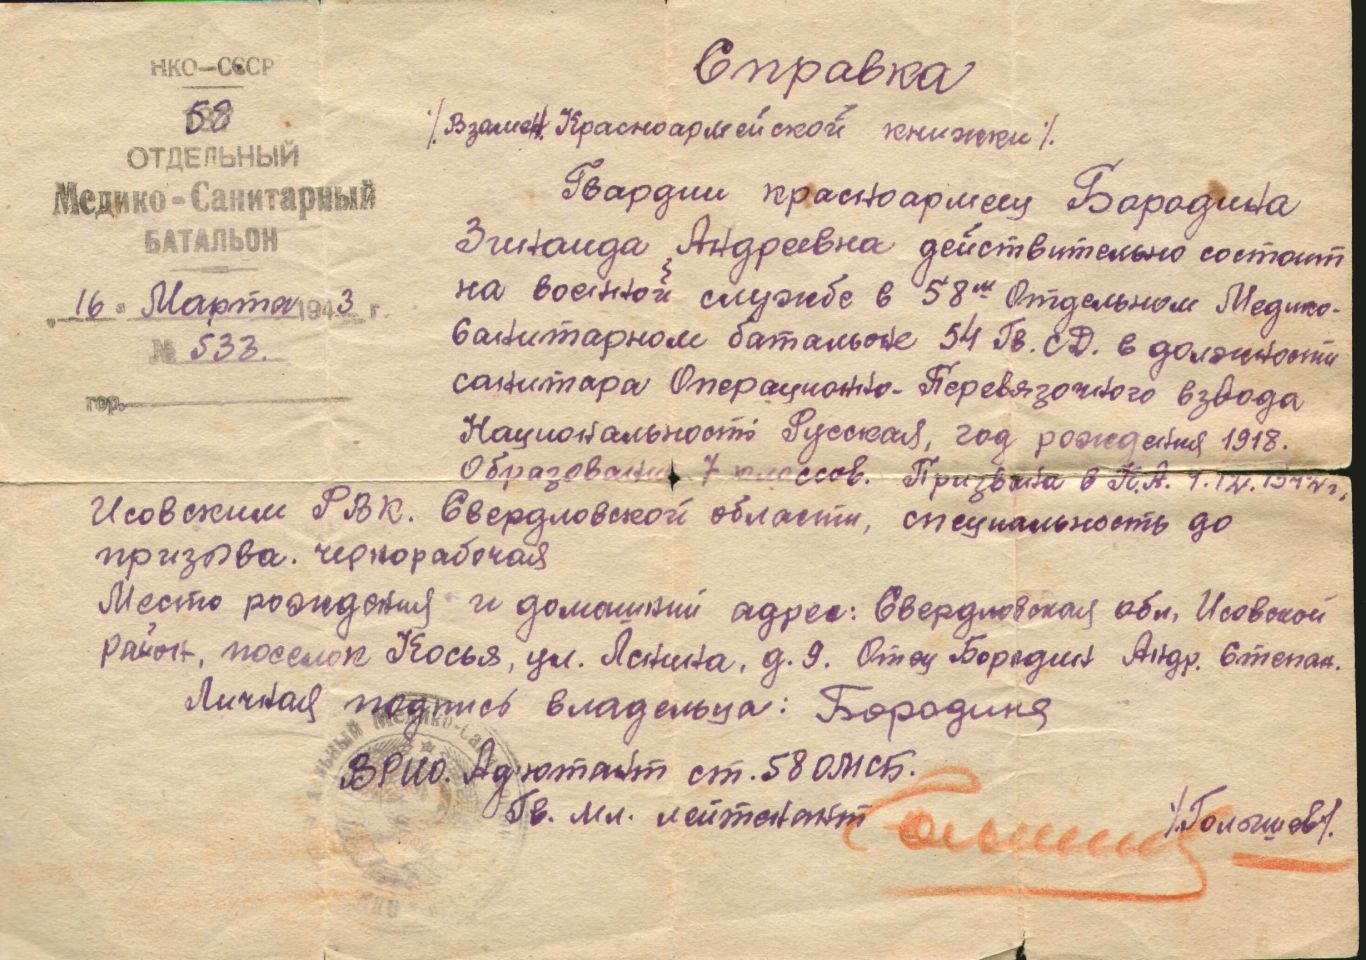 НКО—СССР
58
ОТДЕЛЬНЫЙ
Медико-Санитарный
БАТАЛЬОН
"16" Марта 1943 г.
№ 533.
гор.
Справка
/. Взамен Красноармейской книжки /.
Гвардии красноармеец Бородина
Зинаида Андреевна действительно состоит
на военной службе в 58м Отдельном Медико-
Санитарном батальоне 54 Гв. СД. в должности
санитара Операционно-Перевязочного взвода
Национальность Русская, год рождения 1918.
Образование 7 классов. Призвана в К.А.
Исовским РВК. Свердловской области, специальность до
призыва. чернорабочая
Место рождения и домашний адрес: Свердловская обл. Исовской
район, поселок Косья, ул. Ленина, д. 9. Отец Бородин Андр. Степан.
Личная подпись владельца: Бородина
ВРИО. Адъютант ст. 58 ОМСБ.
Гв. мл. лейтенант /.Голышев/.
Медико-Са